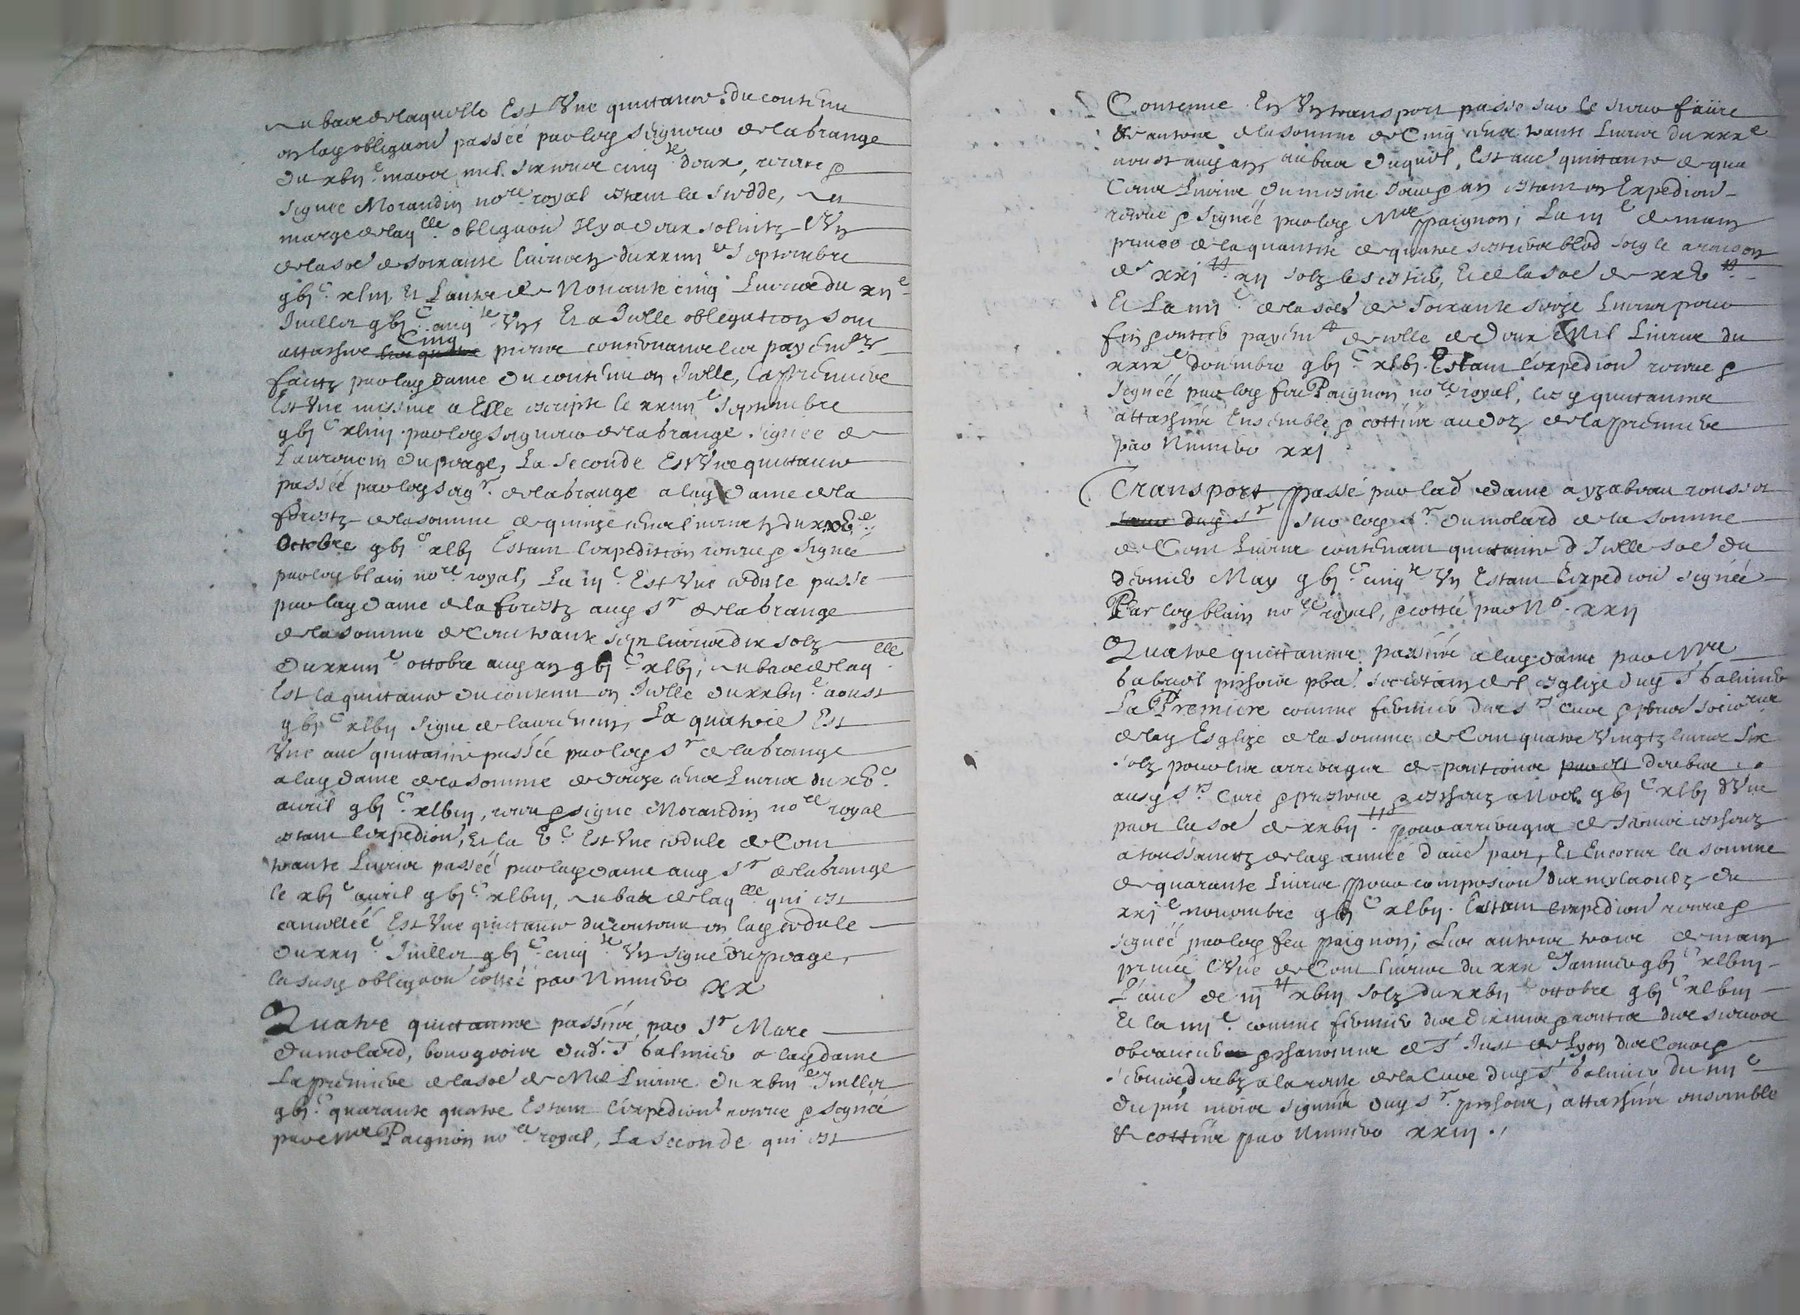 Au bas de laquelle Est Vne quittance du contenu
en lad obligaon passéé par led seigneur de la brange
Du xbij e mars mil six cens cinq te deux, receue p
signee Morandin no re royal estant la siedde, En
marge de laq lle obligaon Il y a deux solvitz Vn
de la soe de soixante livres du xxiiij e Septembre
gbj c xliiij Et Lautre de Nonante cinq Livres du xij e
Juillet gbj c cinq te Vn Et a Icelle obligation sont
attachés Cinq pieces concernant les payemens
faictz par lad Dame du contenu en Icelle, la premiere
Est Vne missiue a Elle escripte le xxiiij e Septembre
gbj c xliiij par led seigneur de la brange signée de
Laurencin du prage, La Seconde Est Vne quittance
passée par led seig r de la brange a lad Dame de la
forestz de la somme de quinze cens livres du
Octobre gbj c xlbj Estant lexpedition receue p signée
par led blain no re royal, La iij e Est Vne cedule passe
par lad Dame de la forestz aud s r de la brange
de la somme de Cent trante sept livres dix solz
Du xxiiij e octobre aud an gbj c xlbj, au bas de laq lle
Est la quittance du contenu en Icelle du xxbij e aoust
gbj c xlbij signe de laurencin, La quatrie Est
Vne aue quittance passée par led s r de la brange
a lad Dame de la somme de douze cens Livres du xb e
auril gbj c xlbiij, receue p signe Morandin no re royal
estant lexpedion, Et la b e Est Vne cedule de Cent
trante Livres passéé par lad Dame aud s r de la brange
le xbj e auril gbj c xlbiij, au bas de laq lle qui est
cancellée Est Vne quittance du contenu en lad cedule
Du xxij e Juillet gbj c cinq te Vn signé du prage,
la susd obligaon cottéé par Numero xx
Quatre quittances passées par s r Marc
Dumolard, bourgeois dud s t balmier a lad dame
La premiere de la soe de Mil Livres du xbiij e Juillet
gbj c quarante quatre Estant lexpedion receue p signéé
par Me Paignon no re royal, La seconde qui est
Contenue En Vn transport passe sur le sieur faure
& autres de la somme de Cinq cens trante Livres du xxx e
aoust aud an, au bas duquel, Est aue quittance de qua
Cens Livres du mesme jour p an estant en Expedion
receue p signéé par led Me paignon, La iij e de main
priuée de la quantité de quatre sestiers bled seig le a raison
de xxj tt xij solz le sestier, Et de la soe de xxb tt
Et La iiij e de la soe de Soixante seize Livres pour
fin pontier payem t de celle de Deux Mil Livres du
xxix e decembre gbj c xlbj Estant lexpedion receue p
signéé par led feu Paignon no re royal, lesd quittances
attachéé Ensemble p cottéé au doz de la premiere
par Numero xxj
Transport passé par lad dame ayzabeau rousset
sur led s r dumolard de la somme
de Cent Livres contenant quittance d Icelle soe du
dernier May gbj c cinq te Vn Estant Lexpedion signéé
Par led blain no re royal, p cottéé par N o xxij
Quatre quittances passées a lad dame par Me
pbre societain de l esglize dud s t balmier
La Premiere comme fermier des s rs cure p pbres societaires
de lad Esglize de la somme de Cent quatre Vingtz liures six
solz pour les arrerages de pentions deubes
ausd s rs Curé p prestres p escheuz a Noel gbj c xlbj d Vne
part la soe de xxbij tt pour arrerages de seruis escheuz
a toussaintz de lad année d aue part, Et Encores la somme
de quarante Livres pour composion des mylaoudz du
xxj e nouembre gbj c xlbj Estant lexpedion receue p
signéé par led feu paignon, Les autres trois de main
priuée L Vne de Cent livres du xxx e Januier gbj c xlbiij
L aue de iij tt xbiij solz du xxbij e octobre gbj c xlbiij
Et la iiij e comme fermier des dixmes p rentes des sieurs
obeanciers p chanoines de s t Just de Lyon des Cences p
seruis deubz a la rente de la Cure dud s t balmier du iiij e
du pnt mois signéé dud s r, attachéé ensemble
& cottéés par Numero xxiij